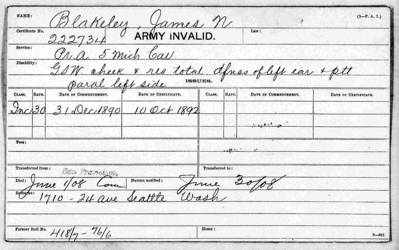 NAME: Blakeley, James N
(3-P. A. I.)
Certificate No. Law:
222734 ARMY INVALID.
Service:
Pr. A 5 Mich Cav
Disability:
GSW cheek & res total dfnss of left ear & ptl
paral left side
ISSUES.
CLASS. RATE. DATE OF COMMENCEMENT. DATE OF CERTIFICATE. CLASS. RATE. DATE OF COMMENCEMENT. DATE OF CERTIFICATE.
Inc 30 31 Dec 1890 10 Oct 1892
Fees:
Transferred from: San Francisco Transferred to:
Died: June 1/08 Com Bureau notified: June 30/08
1710 - 24 Ave Seattle Wash
Former Roll No. 418/7-76/6 Home: